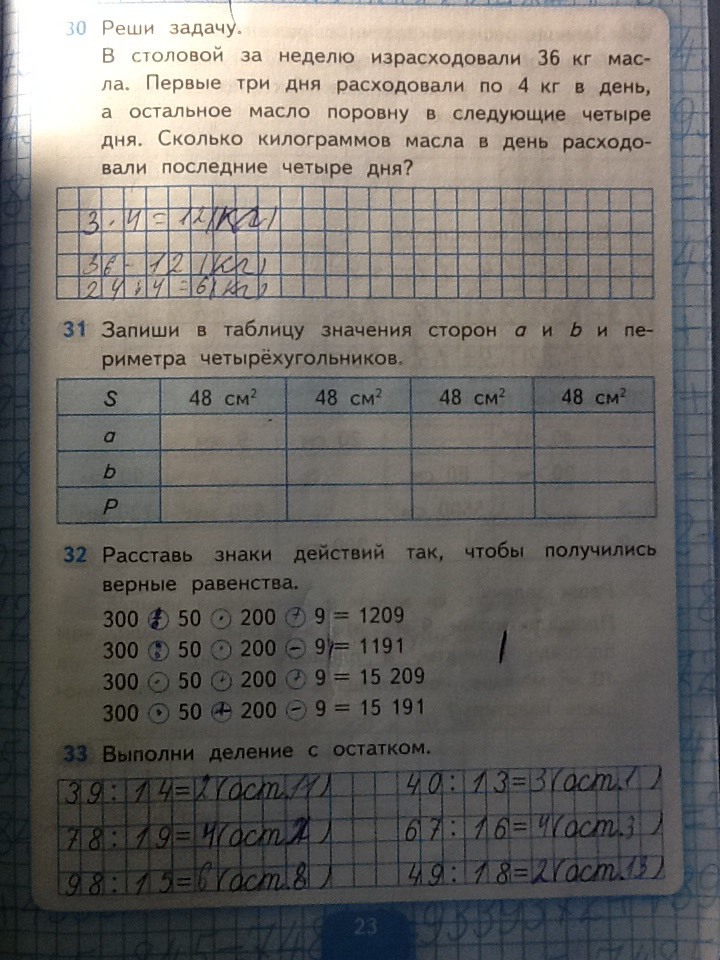 30 Реши задачу.
В столовой за неделю израсходовали 36 кг мас-
ла. Первые три дня расходовали по 4 кг в день,
а остальное масло поровну в следующие четыре
дня. Сколько килограммов масла в день расходо-
вали последние четыре дня?
3 · 4 = 12 (кг)
36 - 12 (кг)
24 : 4 = 6 (кг)
31 Запиши в таблицу значения сторон a и b и пе-
риметра четырёхугольников.
S 48 см² 48 см² 48 см² 48 см²
a
b
P
32 Расставь знаки действий так, чтобы получились
верные равенства.
300 : 50 · 200 + 9 = 1209
300 : 50 · 200 − 9 = 1191
300 · 50 + 200 + 9 = 15 209
300 · 50 + 200 − 9 = 15 191
33 Выполни деление с остатком.
39 : 14 = 2 (ост. 11) 40 : 13 = 3 (ост. 1)
78 : 19 = 4 (ост. 2) 67 : 16 = 4 (ост. 3)
98 : 15 = 6 (ост. 8) 49 : 18 = 2 (ост. 13)
23